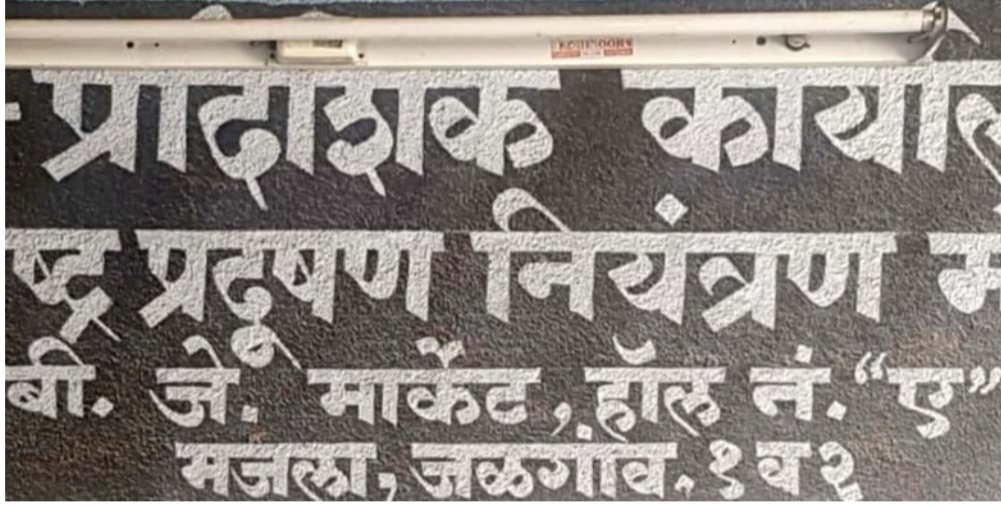 KOHINOOR
प्रादेशिक कार्याल
ष्ट्र प्रदूषण नियंत्रण म
बी. जे. मार्केट, हॉल नं. “ए”
मजला, जळगांव. १ व २